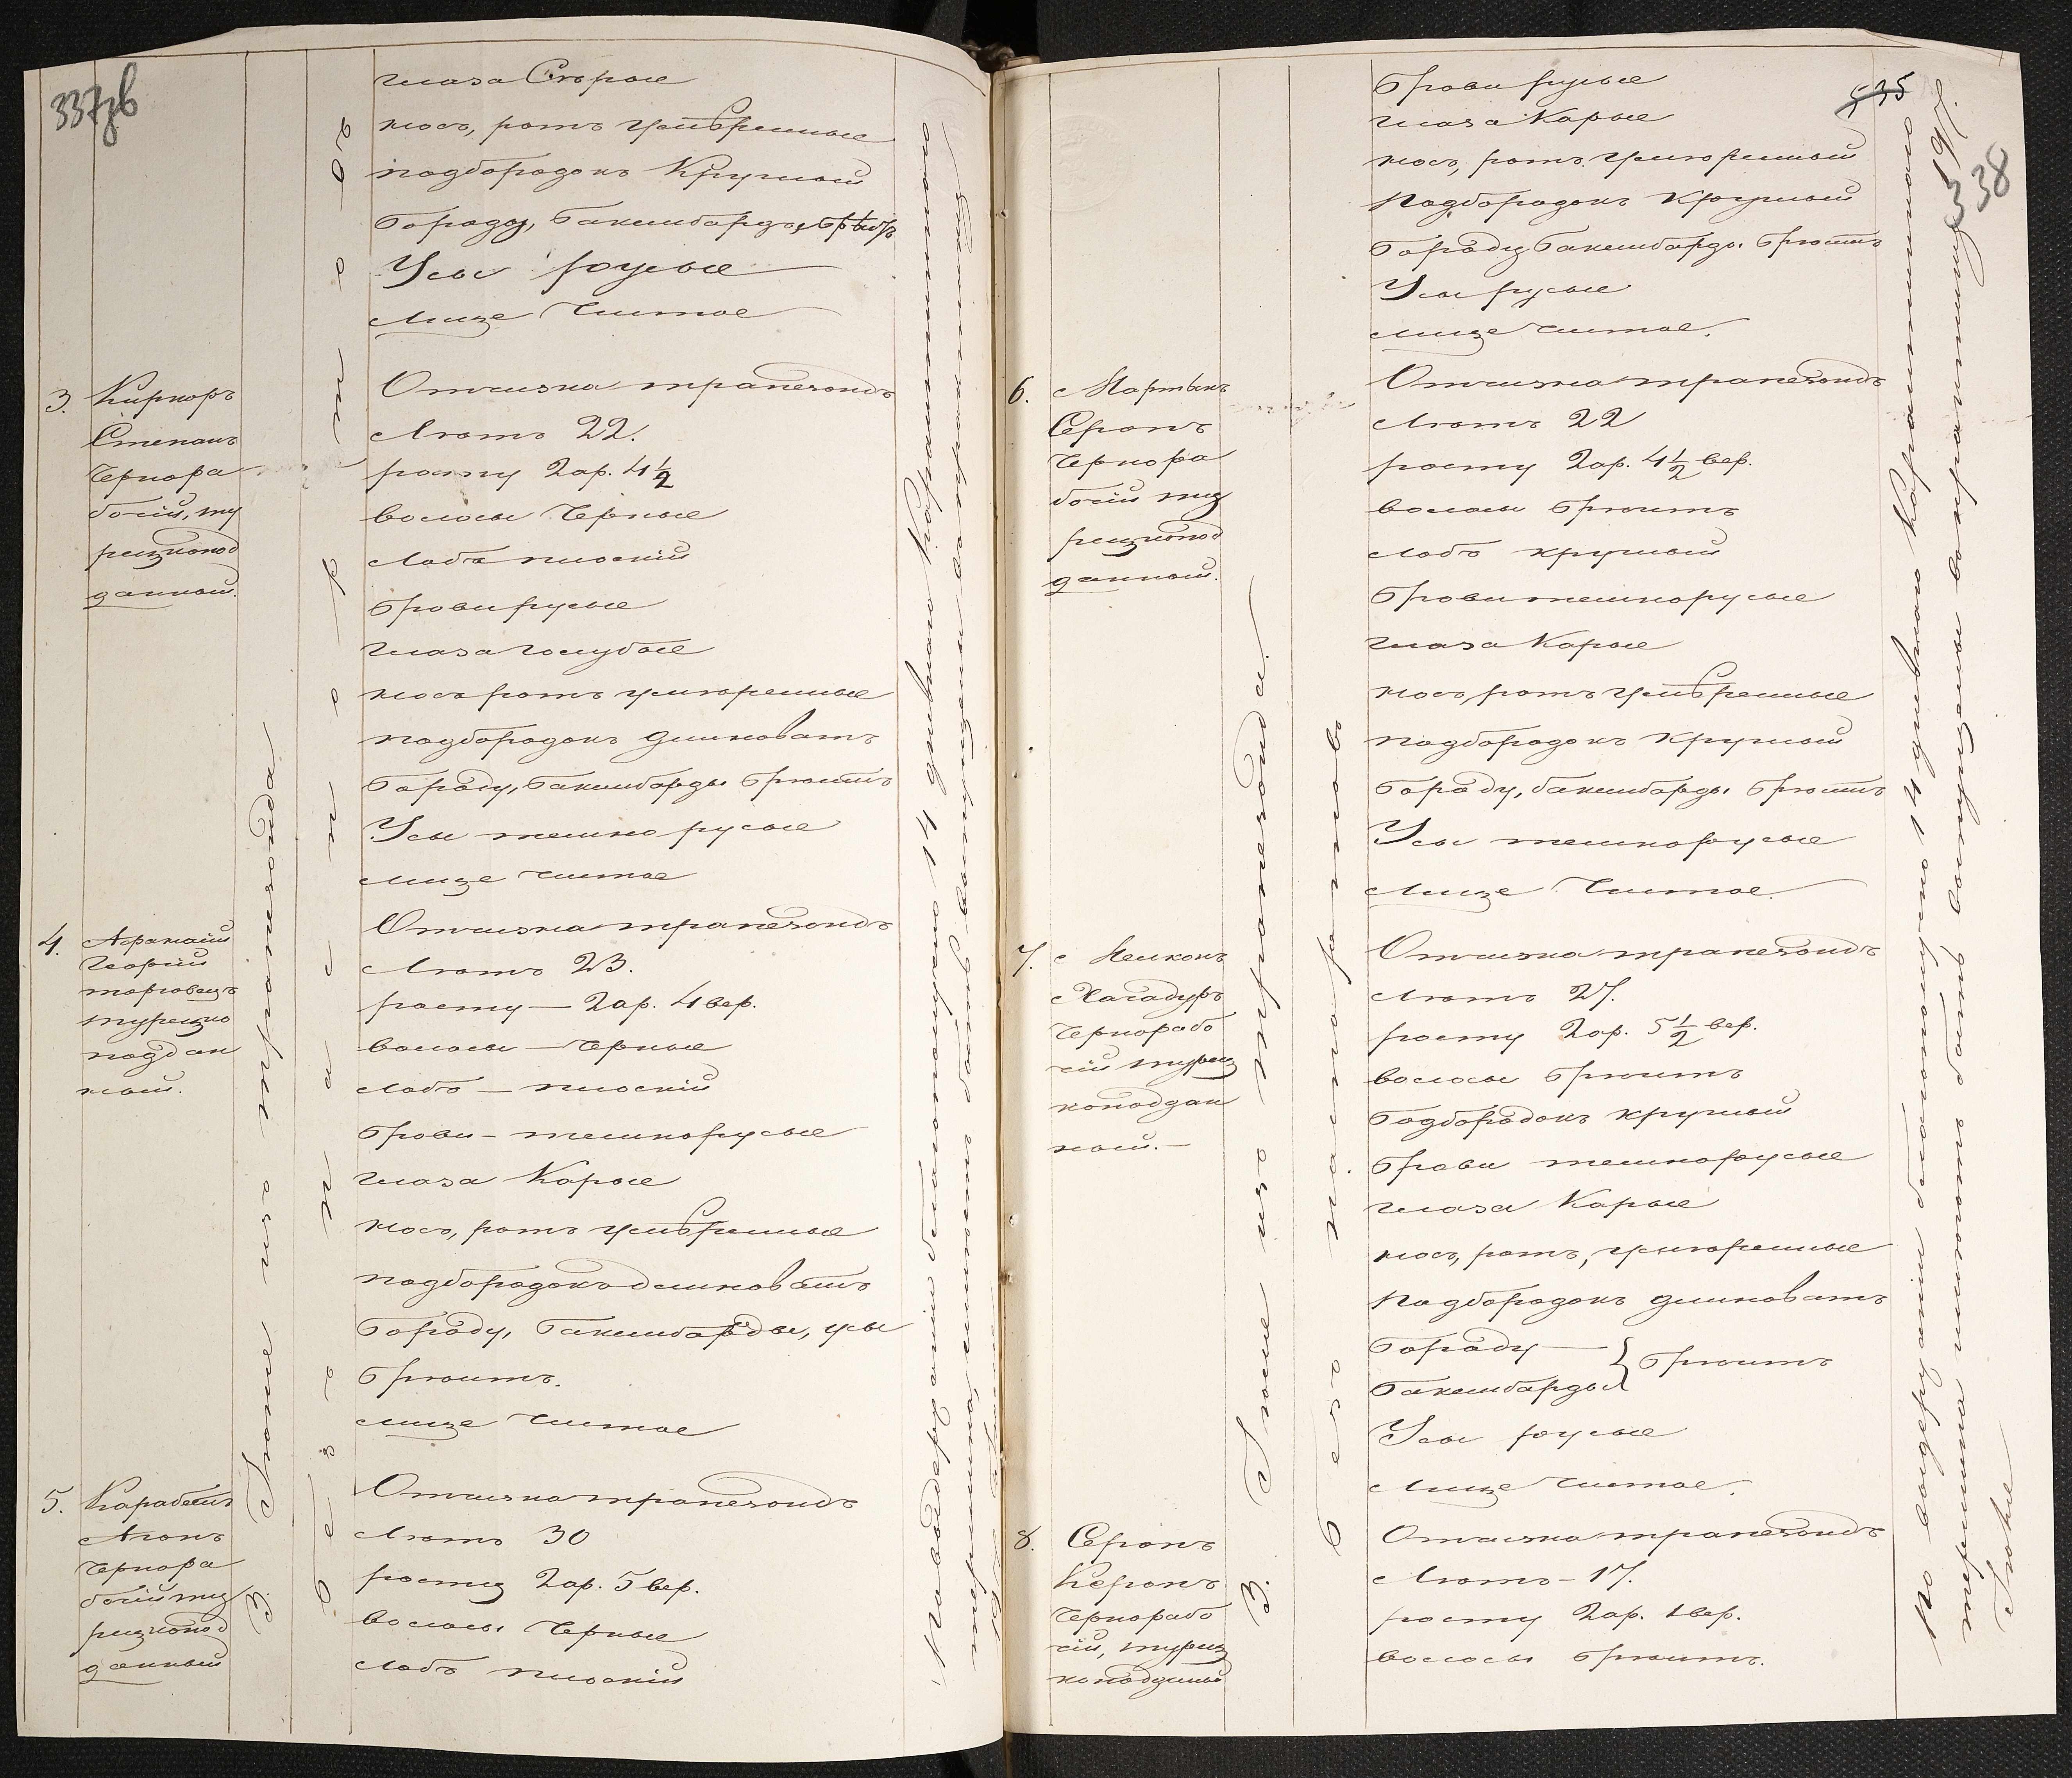 глаза Сѣрые
носъ, ротъ умѣренные
подбородокъ Круглый
бороду, бакенбарды, брѣетъ
Усы русые
лице Чистое
3. Киркоръ
Степанъ
Чернора
бочій, ту
рецкопод
данный.
Отчизна трапезондъ
Лѣтъ 22.
росту 2 ар. 4 1/2
волосы Черные
Лобъ плоскій
брови русые
глаза голубые
носъ ротъ умѣренные
подбородокъ длиноватъ
бороду, бакенбарды брѣетъ
Усы темно русые
лице чистое
4.
торговецъ
турецко
поддан
ный.
Отчизна трапезондъ
Лѣтъ 23.
росту — 2 ар. 4 вер.
волосы — Черные
лобъ — плоскій
брови - темнорусые
глаза Карые
носъ, ротъ умѣренные
подбородокъ длиноватъ
бороду, бакенбарды, усы
брѣетъ.
лице чистое
5. Карабетъ
Агопъ
Чернора
бочій ту
рецкопод
данный
Отчизна трапезондъ
Лѣтъ 30
росту 2 ар. 5 вер.
волосы Черные
лобъ плоскій
3. Іюня изъ трапезонда
безъ паспортовъ
По выдержаніи благополучно 14 дневнаго Карантиннаго
термина, имѣютъ быть выпущены въ практику
38
брови русые
глаза Карые
носъ, ротъ умѣренный
Подбородокъ Круглый
бороду бакенбарды брѣетъ
Усы русые
лице чистое.
6. Мартынъ
Серопъ
Чернора
бочій ту
рецкопод
данный.
Отчизна трапезондъ
Лѣтъ 22
росту 2 ар. 4 1/2 вер.
волосы брѣетъ
лобъ круглый
брови темнорусые
глаза Карые
носъ, ротъ умѣренные
подбородокъ Круглый
бороду, бакенбарды брѣетъ
Усы темнорусые
Лице Чистое.
7. Мелконъ
Хачадуръ
Чернорабо
чій турец
коподдан
ный. —
Отчизна трапезондъ
Лѣтъ 27.
росту 2 ар. 5 1/2 вер.
волосы брѣетъ
Подбородокъ круглый
брови темнорусые
глаза Карые
носъ, ротъ, умѣренные
Подбородокъ длиноватъ
бороду —
бакенбарды } брѣетъ
Усы русые
Лице чистое.
8. Серопъ
Керопъ
Чернорабо
чій, турец
коподданный
Отчизна трапезондъ
Лѣтъ — 17.
росту 2 ар. 1 вер.
волосы брѣетъ.
3. Іюня изъ Трапезонда.
безъ паспортовъ
По выдержаніи благополучно 14 дневнаго Карантиннаго
термина имѣютъ быть выпущены въ практику 19
Іюня